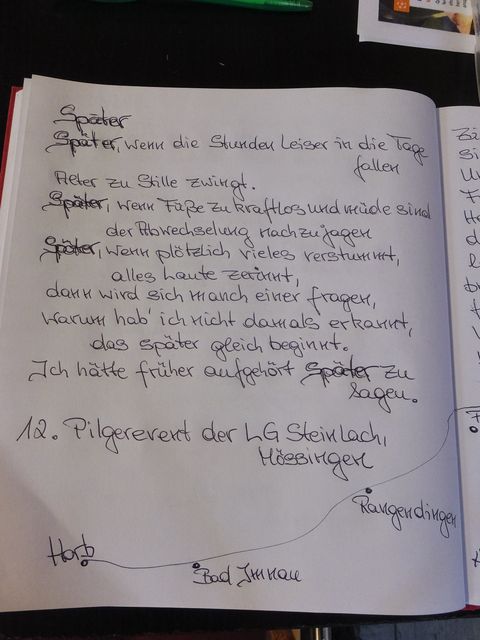 Später
Später, wenn die Stunden Leiser in die Tage
fallen
Alter zu Stille zwingt.
Später, wenn Füße zu kraftlos und müde sind
der Abwechselung nachzujagen
Später, wenn plötzlich vieles verstummt,
alles heute zerinnt,
dann wird sich manch einer fragen,
warum hab' ich nicht damals erkannt,
das später gleich beginnt.
Ich hätte früher aufgehört Später zu
sagen.
12. Pilgerevent der LG Steinlach,
Mössingen
Rangendingen
Horb
Bad Imnau